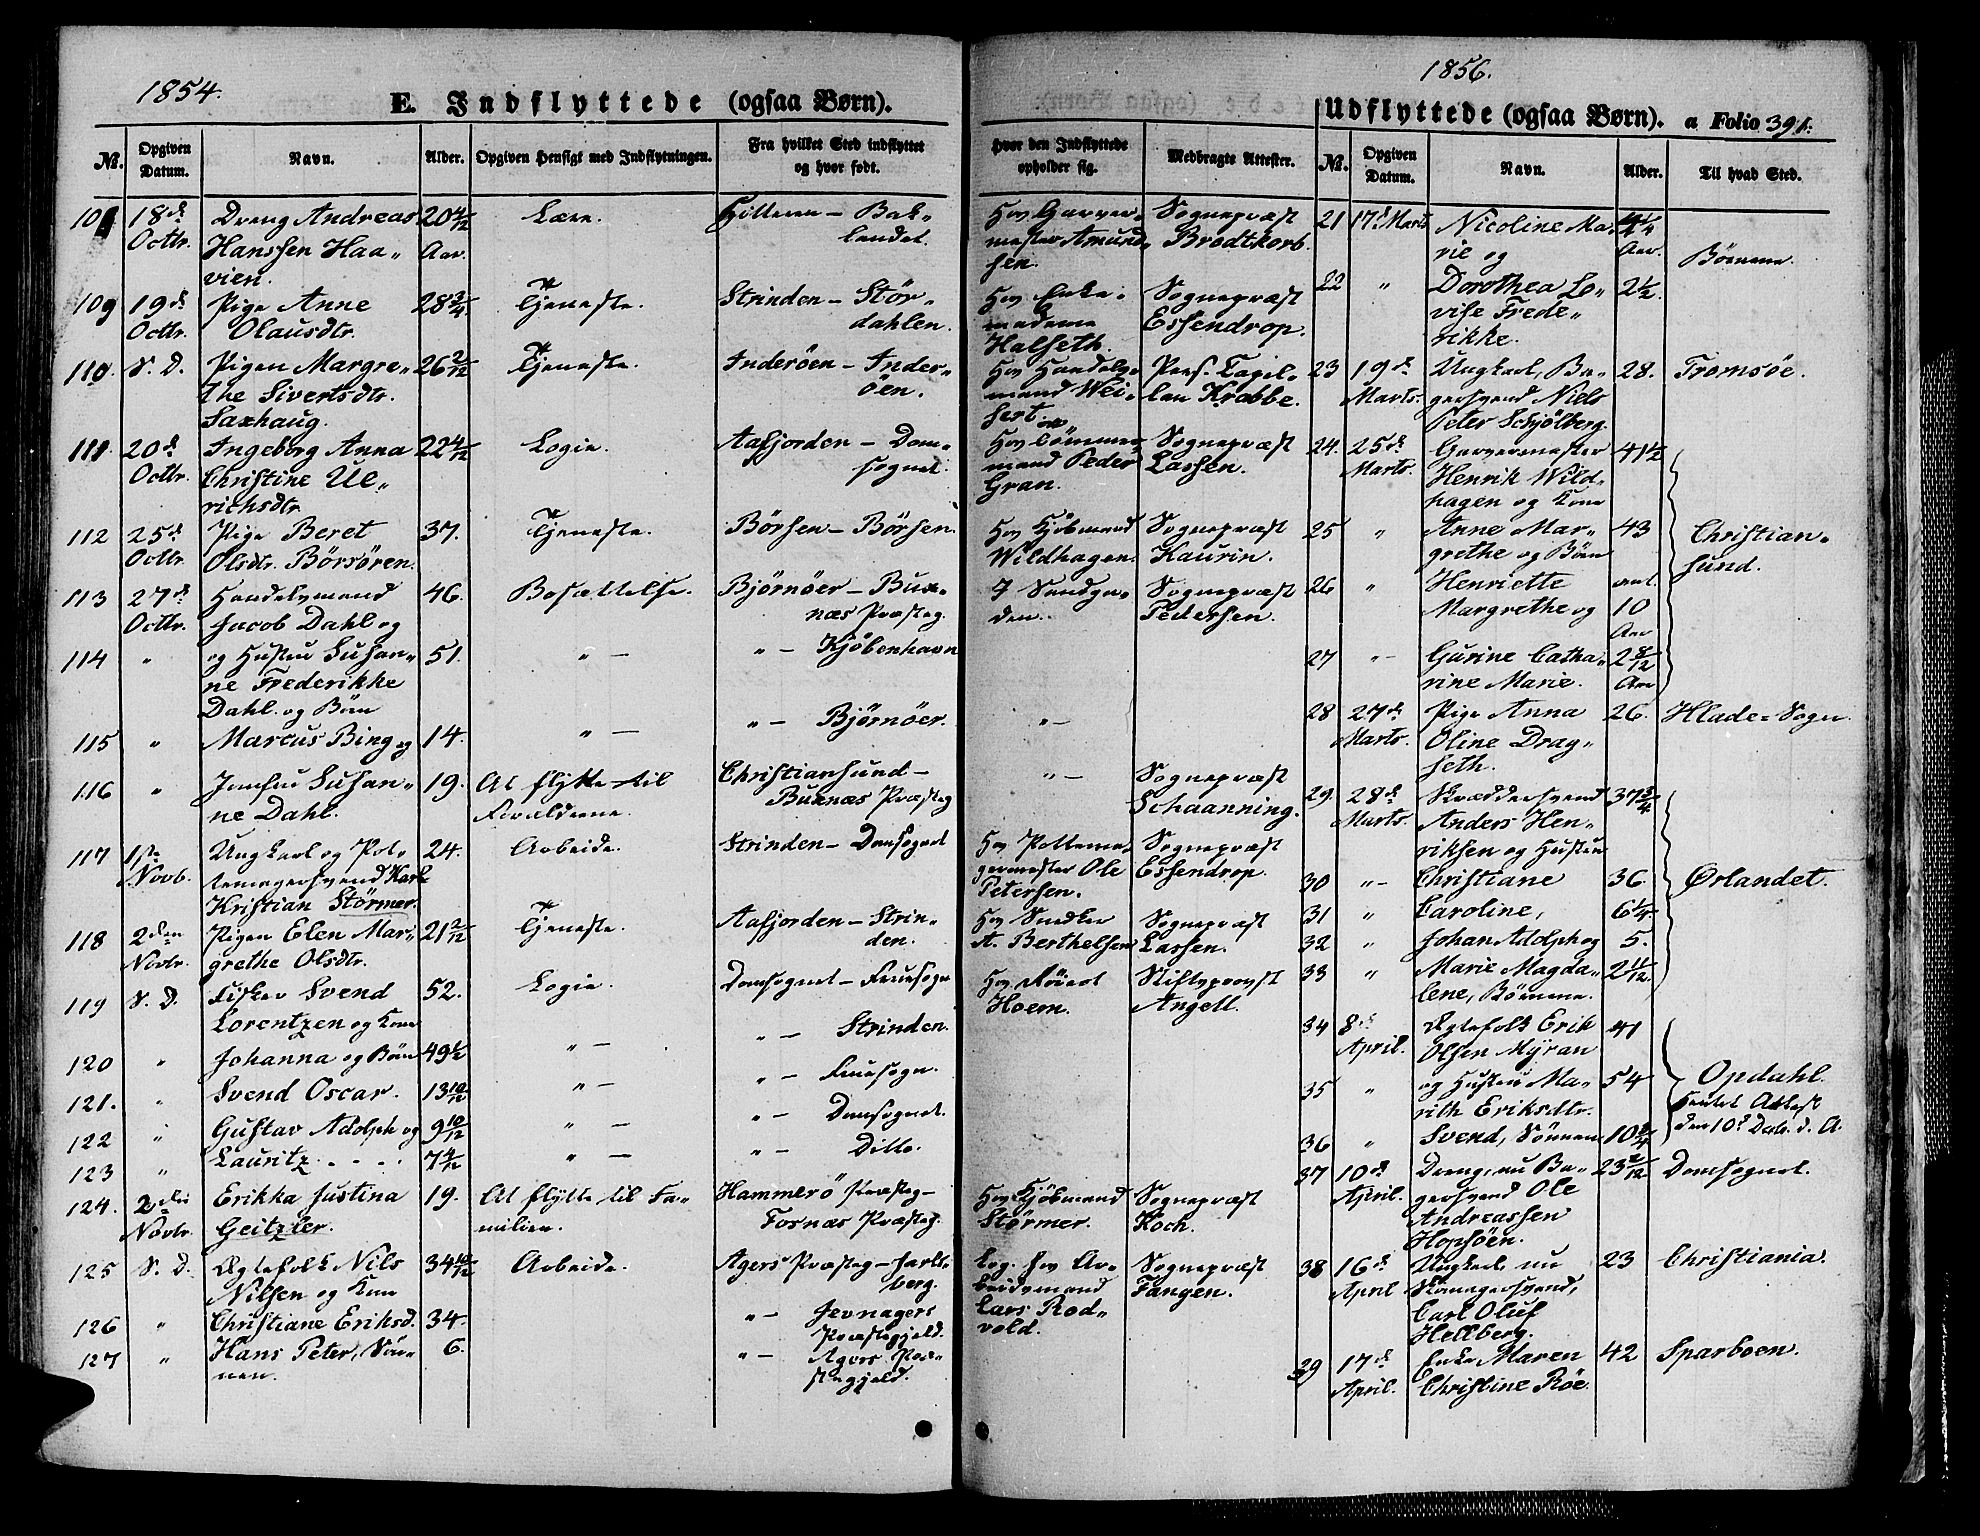 1854.
E. Indflyttede (ogsaa Børn).
No. Opgiven Datum. Navn. Alder. Opgiven Hensigt med Indflytningen. Fra hvilket Sted indflyttet og hvor født. Hvor den Indflyttede opholder sig. Medbragte Attester.
108 18d Octbr. Dreng Andreas Hanssen Haa„vien. 20 4/12 Aar. Lære. Hitteren – Bak„landet. Hos Garver„mester Amund„sen. Sognepræst Brodtkorb.
109 19d Octbr. Pige Anne Olausdtr. 28 3/4. Tjeneste. Strinden – Stör„dahlen. Hos Enke„madame Halseth. Sognepræst Essendrop.
110. S. D. Pigen Margre„the Sivertsdtr. Saxhaug. 26 2/12 Tjeneste. Inderöen – Inder„öen. Hos Handels„mand Wei„sert. Pers. Capel„lan Krabbe.
111 20d Octbr. Ingeborg Anna Christine Ul„richsdtr 22 4/12 Logie. Aafjorden – Dom„sognet. Hos Tömmer„mand Peder Gran. Sognepræst Lassen.
112 25d Octbr Pige Beret Olsdtr. Börsören. 37. Tjeneste. Börsen – Börsen. Hos Kjöbmand Wildhagen Sognepræst Kaurin.
113 27d Octbr. Handelsmand Jacob Dahl og 46. Bosættelse. Bjørnöer – Bux„næs Præsteg. I Sandga„den. Sognepræst Pedersen.
114 „ og Hustru Susan„ne Frederikke Dahl. og Börn 51. „ – „ – Kjöbenhavn
115 „ Marcus Bing og 14. „ – „ – Bjørnöer. „ –
116 „ Jomfru Susan„ne Dahl. 19. At flytte til Forældrene. Christiansund – Buxnæs Præsteg „ – Sognepræst Schaanning.
117 1ste Novb. Ungkarl og Pot„temagersvend Karl Kristian Störmer. 24. Arbeide. Strinden – Domsognet Hos Pottema„germester Ole Petersen. Sognepræst Essendrop.
118 2den Novbr. Pigen Elen Mar„grethe Olsdtr. 21 2/12 Tjeneste. Aafjorden – Strin„den. Hos Snedker A. Berthelsen Sognepræst Lassen.
119 S. D. Fisker Svend Lorentzen og Kone 52. Logie. Domsognet – Fruesogn Hos Hoem. Stiftsprovst Angell.
120 „ Johanna og Börn 49 1/2 „ – „ – Strinden.
121. „ Svend Oscar. 13 10/12 „ – „ – Fruesogn.
122 „ Gustav Adolph og 9 10/12 „ – „ – Domsognet.
123 „ Lauritz. . . . . 7 4/12 „ – „ – Ditto.
124. 2den Novbr. Erikka Justina Geitzler. 19. At flytte til Fa„milien. Hammerö Præsteg – Fosnæs Præsteg. Hos Kjöbmand Störmer. Sognepræst Koch.
125 S. D. Ægtefolk Nils Nilsen og Kone 34 10/12 Arbeide. Agers Præsteg – Jarls„berg. Log. hos Ar„beidsmand Lars Rod„vold. Sognepræst Fangen.
126 „ Christiane Eriksd. 34. „ – Jevnagers Præstegjeld.
127 „ Hans Peter, Sön„nen. 6. „ – Agers Præ„stegjeld.
1856.
Udflyttede (ogsaa Børn). a Folio 391.
No. Opgiven Datum. Navn. Alder. Til hvad Sted.
21 17d Marts Nicoline Ma„rie og 4 1/4 Aar.
Börnene.
22 „ Dorothea Lo„vise Frede„rikke. 2 1/2.
23 19d Marts. Ungkarl, Ba„gersvend Niels Peter Schjölberg. 28. Tromsöe.
24. 25d Marts. Garvermester Henrik Wild„hagen og Kone 41 1/2
25 „ Anne Mar„grethe og Börn 43 Christian„sund.
26 „ Henriette Margrethe og 10 Aar
27 „ – Gurine Catha„rine Marie. 2 8/12 Aar
28 27d Marts. Pige Anna Oline Drag„seth. 26. Hlade= Sogn.
29. 28d Marts. Skræddersvend Anders Hen„riksen og Hustru 37 3/4
30 „ – Christiane 36. Ørlandet.
31 „ Caroline, 6 1/4
32 „ Johan Adolph og 5.
33 „ Marie Magda„lene, Börnene. 2 11/12.
34 8d April. Ægtefolk Erik Olsen Myran 41
35 „ og Hustru Ma„rith Eriksdtr. 54 Opdahl.
hentet Attest den 10d Debr. d. A.
36 „ Svend, Sönnen 10 3/4
37 10d April. Dreng, nu Ba„gersvend Ole Andreassen Hopsöen. 23 2/12 Domsognet.
38 16d April Ungkarl nu Skomagersvend, Carl Oluf Hellberg. 23 Christiania.
39 17d April. Enke Maren Christine Röe. 42 Sparboen.